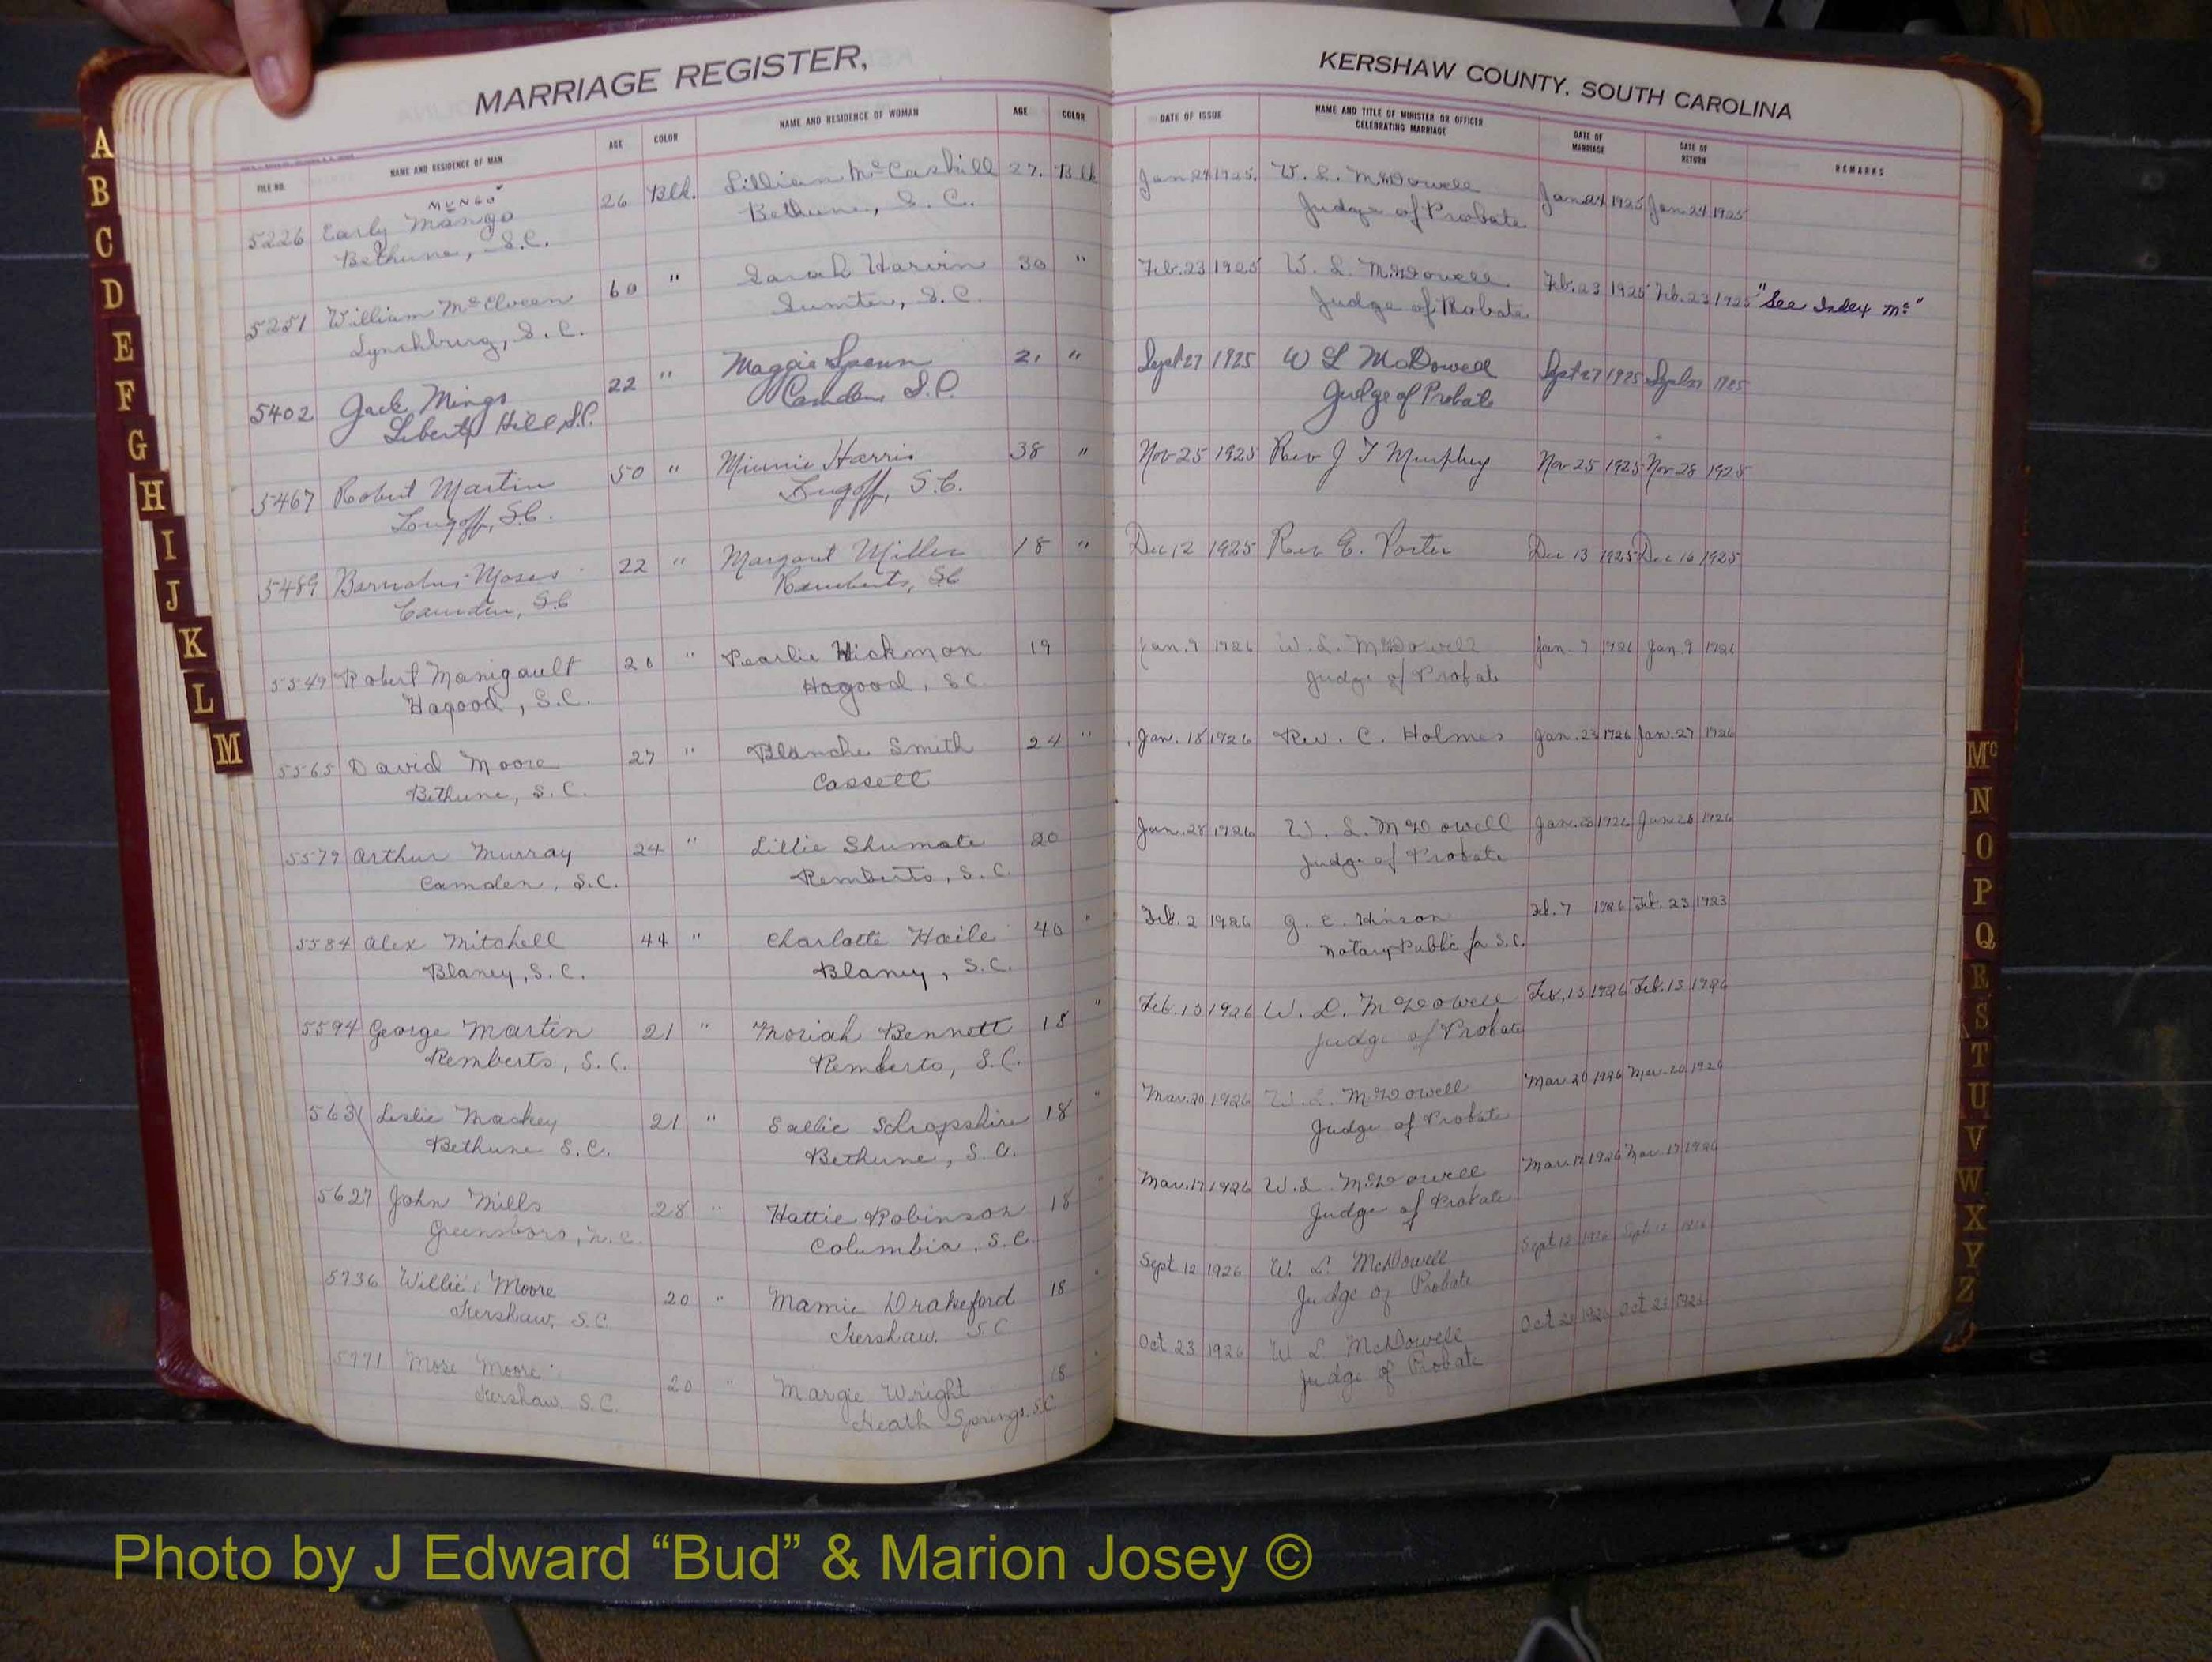 MARRIAGE REGISTER,
KERSHAW COUNTY, SOUTH CAROLINA
FILE NO. NAME AND RESIDENCE OF MAN AGE COLOR NAME AND RESIDENCE OF WOMAN AGE COLOR DATE OF ISSUE NAME AND TITLE OF MINISTER OR OFFICER CELEBRATING MARRIAGE DATE OF MARRIAGE DATE OF RETURN REMARKS
MUNGO
5226 Early Mango 26 Blk. Lillian McCaskill 27. Blk Jan 24 1925. W. L. McDowell Jan 24 1925 Jan 24 1925
Bethune, S.C. Bethune, S.C. Judge of Probate
5251 William McElveen 60 " Sarah Harvin 30 " Feb. 23 1925 W. L. McDowell Feb. 23 1925 Feb. 23 1925 "See Index Mc"
Lynchburg, S.C. Sumter, S.C. Judge of Probate
5402 Jack Mingo 22 " Maggie Spann 21 " Sept 27 1925 W L McDowell Sept 27 1925 Sept 27 1925
Liberty Hill S.C. Camden S.C. Judge of Probate
5467 Robert Martin 50 " Minnie Harris 38 " Nov 25 1925 Rev J T Murphey Nov 25 1925 Nov 28 1925
Lugoff, S.C. Lugoff, S.C.
5489 Moses 22 " Margaret Miller 18 " Dec 12 1925 Rev E. Porter Dec 13 1925 Dec 16 1925
Camden, S.C Remberts, S.C
5549 Robert Manigault 20 " Pearlie Hickman 19 Jan. 9 1926 W. L. McDowell Jan. 9 1926 Jan. 9 1926
Hagood, S.C. Hagood, S.C. Judge of Probate
5565 David Moore 27 " Blanche Smith 24 " Jan. 18 1926 Rev. C. Holmes Jan. 23 1926 Jan. 27 1926
Bethune, S.C. Cassett
5579 Arthur Murray 24 " Lillie Shumate 20 Jan. 28 1926 W. L. McDowell Jan. 28 1926 Jan 28 1926
Camden, S.C. Remberts, S.C. Judge of Probate
5584 Alex Mitchell 44 " Charlotte Haile 40 " Feb. 2 1926 G. E. Hinson Feb. 7 1926 Feb. 23 1923
Blaney, S.C. Blaney, S.C. Notary Public for S.C.
5594 George Martin 21 " Moriah Bennett 18 " Feb. 13 1926 W. L. McDowell Feb. 13 1926 Feb. 13 1926
Remberts, S.C. Remberts, S.C. Judge of Probate
5631 Leslie Mackey 21 " Sallie Schropshire 18 " Mar. 20 1926 W. L. McDowell Mar. 20 1926 Mar. 20 1926
Bethune S.C. Bethune, S.C. Judge of Probate
5627 John Mills 28 " Hattie Robinson 18 " Mar. 17 1926 W. L. McDowell Mar. 17 1926 Mar. 17 1926
Greensboro, N.C. Columbia, S.C. Judge of Probate
5736 Willie Moore 20 " Mamie Drakeford 18 " Sept 12 1926 W. L. McDowell Sept 12 1926 Sept 12 1926
Kershaw, S.C. Kershaw. S.C Judge of Probate
5771 Mose Moore 20 " Margie Wright 18 " Oct 23 1926 W L McDowell Oct 23 1926 Oct 23 1926
Kershaw, S.C. Heath Springs, S.C Judge of Probate
A
B
C
D
E
F
G
H
I
J
K
L
M
Mc
N
O
P
Q
R
S
T
U
V
W
X
Y
Z
Photo by J Edward “Bud” & Marion Josey ©